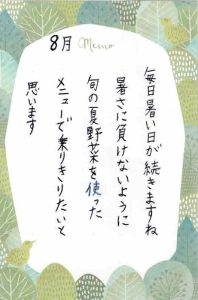 8月 Memo
毎日暑い日が続きますね
暑さに負けないように
旬の夏野菜を使った
メニューで乗りきりたいと
思います